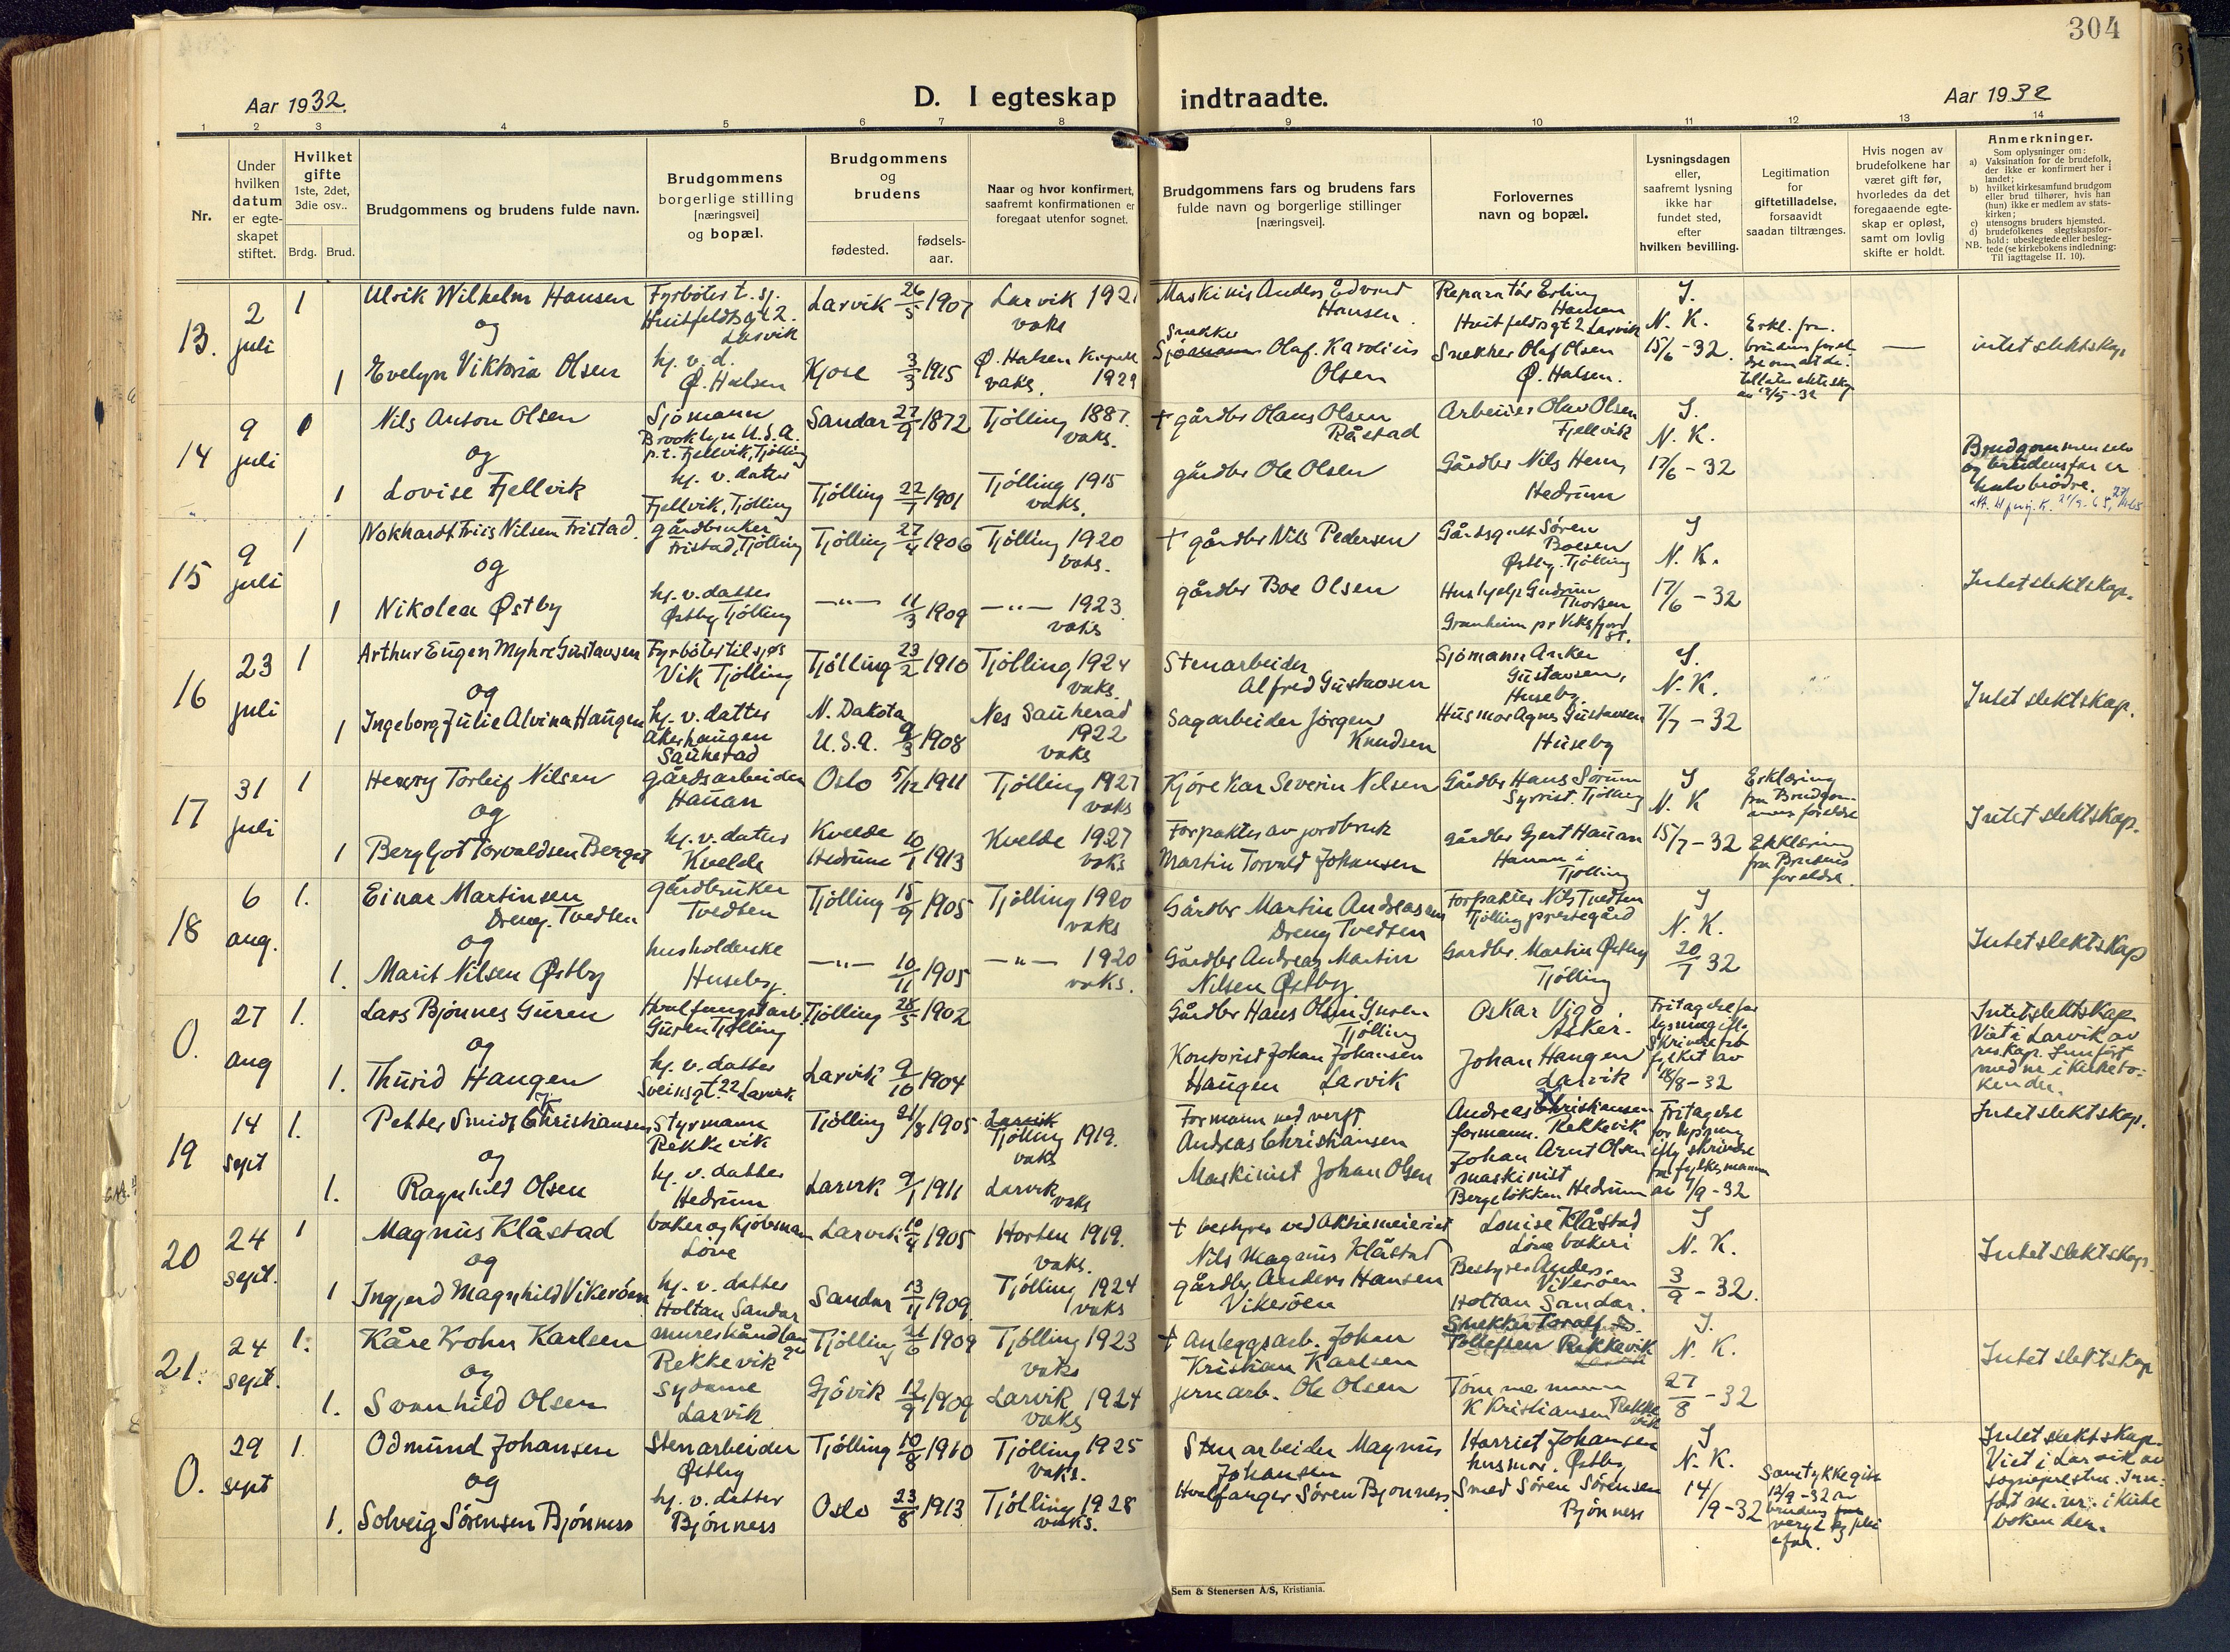 304
Aar 1932.
D. I egteskap indtraadte.
Aar 1932
1 2 3 4 5 6 7 8 9 10 11 12 13 14
Nr.
Under
hvilken
datum
er egte-
skapet
stiftet.
Hvilket
gifte
1ste, 2det,
3die osv..
Brdg. Brud.
Brudgommens og brudens fulde navn.
Brudgommens
borgerlige stilling
[næringsvei]
og bopæl.
Brudgommens
og
brudens
fødested.
fødsels-
aar.
Naar og hvor konfirmert,
saafremt konfirmationen er
foregaat utenfor sognet.
Brudgommens fars og brudens fars
fulde navn og borgerlige stillinger
[næringsvei].
Forlovernes
navn og bopæl.
Lysningsdagen
eller,
saafremt lysning
ikke har
fundet sted,
efter
hvilken bevilling.
Legitimation
for
giftetilladelse,
forsaavidt
saadan tiltrænges.
Hvis nogen av
brudefolkene har
været gift før,
hvorledes da det
foregaaende egte-
skap er opløst,
samt om lovlig
skifte er holdt.
Anmerkninger.
Som oplysninger om:
a) Vaksination for de brudefolk,
der ikke er konfirmert her i
landet;
b) hvilket kirkesamfund brudgom
eller brud tilhører, hvis han
(hun) ikke er medlem av stats-
kirken;
c) utensogns bruders hjemsted.
d) brudefolkenes slegtskapsfor-
hold: ubeslegtede eller besleg-
NB. tede (se kirkebokens indledning:
Til iagttagelse II. 10).
13. 2 juli
1 Ulrik Wilhelm Hansen
og
1 Evelyn Viktoria Olsen
Fyrbøter t. sj.
Huitfeldtsgt 2.
Larvik
hj. v. d.
Ø. Halsen
Larvik 26/5 1907
Kjose 3/3 1915
Larvik 1921
vaks
Ø. Halsen Kapell
vaks. 1929
Maskinis Anders Edvard
Hansen.
Snekker
Olaf Karolius
Olsen
Reparatør Erling
Hansen
Huitfeldtsgt 2 Larvik
Snekker Olaf Olsen
Ø. Halsen.
J.
N. K.
15/6-32.
Erkl. fra
brudens foreld
—
intet slektskap
14 9 juli
Nils Anton Olsen
og
1 Lovise Fjellvik
Sjømann
Brooklyn U.S.A.
p.t. Fjellvik, Tjølling
hj. v. datter
Fjellvik, Tjølling
Sandar 27/9 1872
Tjølling 22/1 1901
Tjølling 1887.
vaks.
Tjølling 1915
vaks.
+ gårdbr Olaus Olsen
Råstad
gårdbr Ole Olsen
Arbeider Olav Olsen
Fjellvik
Gårdbr Nils Hem,
Hedrum
J.
N. K.
17/6-32
Brudgommen selv
og brudens far er
halvbrødre.
15 9 juli
1 Nokhardt Friis Nilsen Fristad.
og
1 Nikolea Østby
gårdbruker
Fristad, Tjølling
hj. v. datter
Østby Tjølling
Tjølling 27/4 1906
—"— 11/3 1909
Tjølling 1920
vaks.
—"— 1923
vaks
+ gårdbr Nils Pedersen
gårdbr Boe Olsen
Gårdsgutt Søren
Boesen
Østby. Tjølling
Hushjelp Gudrun
Thorsen
Granheim pr Viksfjord
st.
J
N. K.
17/6-32
Intet slektskap.
16 23 juli
1 Arthur Eugen Myhre Gustavsen
og
1 Ingeborg Julie Alvina Haugen
Fyrbøter til sjøs
Vik Tjølling
hj. v. datter
Akerhaugen
Sauherad
Tjølling 23/2 1910
N. Dakota
U.S.A. 9/3 1908
Tjølling 1924
vaks.
Nes Sauherad
1922
vaks
Stenarbeider
Alfred Gustavsen
Sagarbeider Jørgen
Knudsen
Sjømann Anker
Gustavsen,
Huseby.
Husmor Agnes Gustavsen
Huseby
J.
N. K.
7/7-32
Intet slektskap.
17 31 juli
1 Henry Torleif Nilsen
og
1 Bergljot Torvaldsen Berget
gårdsarbeider
Hauan
hj. v. datter
Kvelde
Oslo 5/12 1911
Kvelde
Hedrum 10/1 1913
Tjølling 1927
vaks
Kvelde 1927
vaks
Kjøre Kar Severin Nilsen
Forpakter av jordbruk
Martin Torvald Johansen
Gårdbr Hans Sørum
Syrrist. Tjølling
gårdbr Gjert Hauan
Hauan i
Tjølling
J
N. K
15/7-32
Erklæring
fra Brudgom-
mens foreldre
Erklæring
fra Brudens
foreldre.
Intet slektskap.
18 6 aug.
1. Einar Martinsen
Dreng. Tvedten
og
1. Marit Nilsen Østby
gårdbruker
Tvedten
husholderske
Huseby
Tjølling 15/9 1905
—"— 10/11 1905
Tjølling 1920
vaks
—"— 1920
vaks.
Gårdbr Martin Andreasen
Dreng Tvedten
Gårdbr Andreas Martin
Nilsen Østby
Forpakter Nils Tvedten
Tjølling prestegård
Gardbr. Martin Østby
Tjølling
J
N. K.
20/7 32
Intet slektskap
0. 27 aug
1. Lars Bjønnes Guren
og
1. Thurid Haugen
Hvalfangstarb.
Guren Tjølling
hj. v. datter
Sveinsgt. 22 Larvik
Tjølling 28/5 1902
Larvik 9/10 1904
Gårdbr Hans Olsen Guren
Tjølling
Kontorist Johan Johansen
Haugen Larvik
Oskar Vigo
Asker.
Johan Haugen
Larvik
Fritagelse for
lysning iflg.
skrivelse
fylket av
18/8-32
Intet slektskap
Viet i Larvik av
res. kap. Innført
med nr. i kirkebo-
ken der.
19 14 sept
1. Petter Smidt Christiansen
og
1. Ragnhild Olsen
styrmann
Rekkevik
hj. v. datter
Hedrum
Tjølling 21/8 1905
Larvik 9/1 1911
Larvik
Tjølling 1919.
vaks
Larvik
vaks
Formann ved verft
Andreas Christiansen
Maskinist Johan Olsen
Andreas Christiansen
formann. Rekkevik
Johan Arnt Olsen
maskinist
Bergeløkken Hedrum
Fritagelse
for lysning
iflg skrivelse
fra fylkesmannen
av 1/9-32
Intet slektskap.
20 24 sept.
1 Magnus Klåstad
og
1 Ingjerd Magnhild Vikerøen
baker og kjøbmann
Løve
hj. v. datter
Holtan Sandar
Larvik 10/4 1905
Sandar 13/11 1909
Horten 1919.
vaks.
Tjølling 1924
vaks
+ bestyrer ved Aktiemeieriet
Nils Magnus Klåstad
gårdbr Anders Hansen
Vikerøen
Louise Klåstad
Løve bakeri
Bestyrer Anders
Vikerøen
Holtan Sandar.
J
N. K.
3/9-32.
Intet slektskap.
21. 24 sept.
1. Kåre Krohn Karlsen
og
1. Svanhild Olsen
mureshåndlan
ger
Rekkevik
sydame
Larvik
Tjølling 21/6 1909
Gjøvik 12/9 1909
Tjølling 1923
vaks
Larvik 1924
vaks
+ Anleggsarb. Johan
Kristian Karlsen
jernarb. Ole Olsen
Snekker Toralf
Tollefsen Rekkevik
Larvik
Tømmermann
K Kristiansen Rekke
vik
J.
N. K.
27/8-32
Intet slektskap
0. 29 sept
1. Odmund Johansen
og
1. Solveig Sørensen Bjønness
Stenarbeider
Østby
hj. v. datter
Bjønness
Tjølling 10/8 1910
Oslo 23/8 1913
Tjølling 1925
vaks.
Tjølling 1928
vaks.
Stenarbeider Magnus
Johansen
Hvalfanger Søren Bjønness
Harriet Johansen
husmor. Østby
Smed Søren Sørensen
Bjønness
J
N. K.
14/9-32
Samtykke gitt
12/9-32 av
brudens
Intet slektskap.
Viet i Larvik av
sognepresten. Inn-
ført m. nr. i kirke
boken der.
Sem & Stenersen A/S, Kristiania.